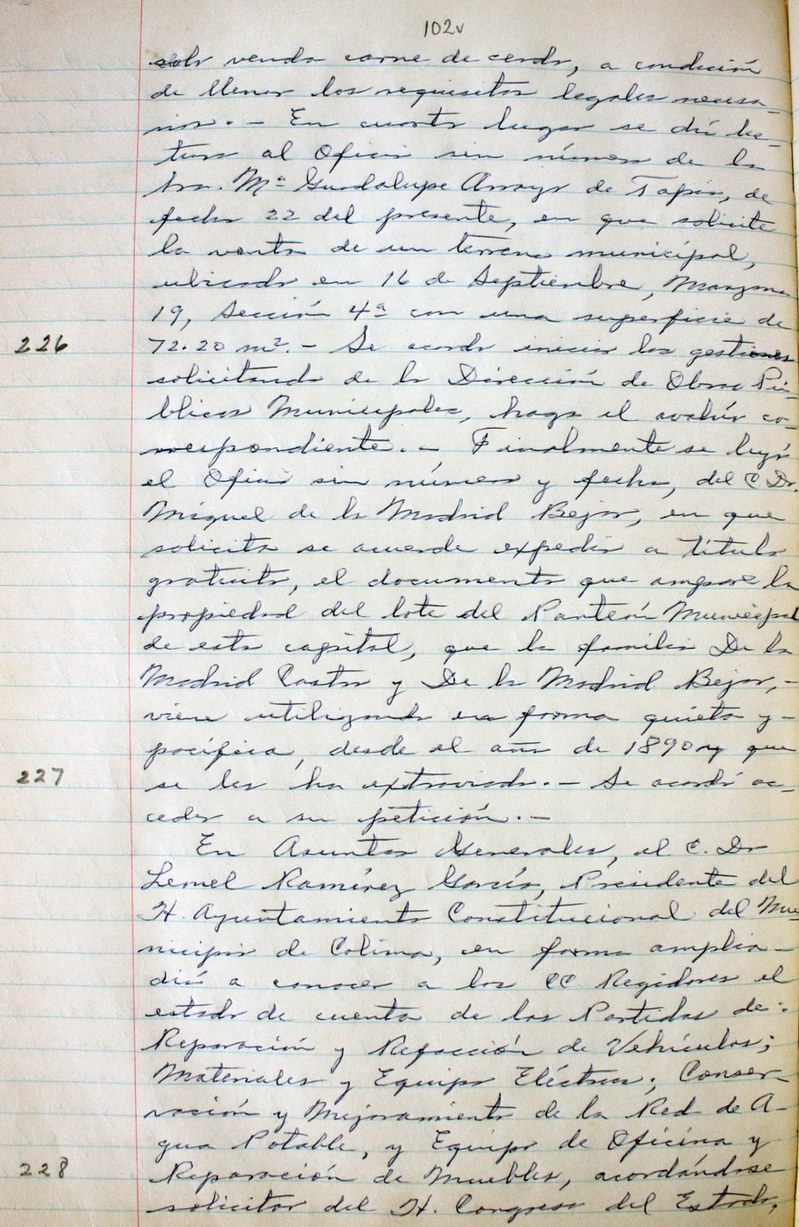 102v
solo venda carne de cerdo, a condición
de llenar los requisitos legales necesa-
rios. - En cuarto lugar se dió lec-
tura al Oficio sin número de la
Sra. Mª Guadalupe Arroyo de Tapia, de
fecha 22 del presente, en que solicita
la venta de un terreno municipal,
ubicado en 16 de Septiembre, Manzana
19, Sección 4ª con una superficie de
226 72.20 m². - Se acordó iniciar las gestiones
solicitando de la Dirección de Obras Pú-
blicas Municipales, haga el avalúo co-
rrespondiente. - Finalmente se leyó
el Oficio sin número y fecha, del C. Dr.
Miguel de la Madrid Bejar, en que
solicita se acuerde expedir a título
gratuito, el documento que ampare la
propiedad del lote del Panteón Municipal
de esta capital, que la familia De la
Madrid Castro y De la Madrid Bejar, -
viene utilizando en forma quieta y -
pacífica, desde el año de 1890 y que
227 se les ha extraviado. - Se acordó ac-
ceder a su petición. -
En Asuntos Generales, el C. Dr
Lemel Ramírez García, Presidente del
H. Ayuntamiento Constitucional del Mu-
nicipio de Colima, en forma amplia -
dió a conocer a los CC Regidores el
estado de cuenta de las Partidas de:
Reparación y Refacción de Vehículos;
Materiales y Equipo Eléctrico; Conser-
vación y Mejoramiento de la Red de A-
gua Potable, y Equipo de Oficina y
228 Reparación de Muebles, acordándose
solicitar del H. Congreso del Estado,